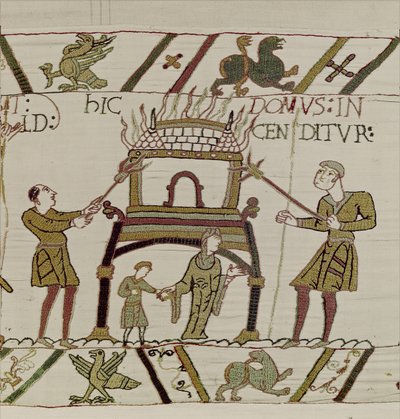 IT: hIC DOMVS: IN
LD: CENDITVR: